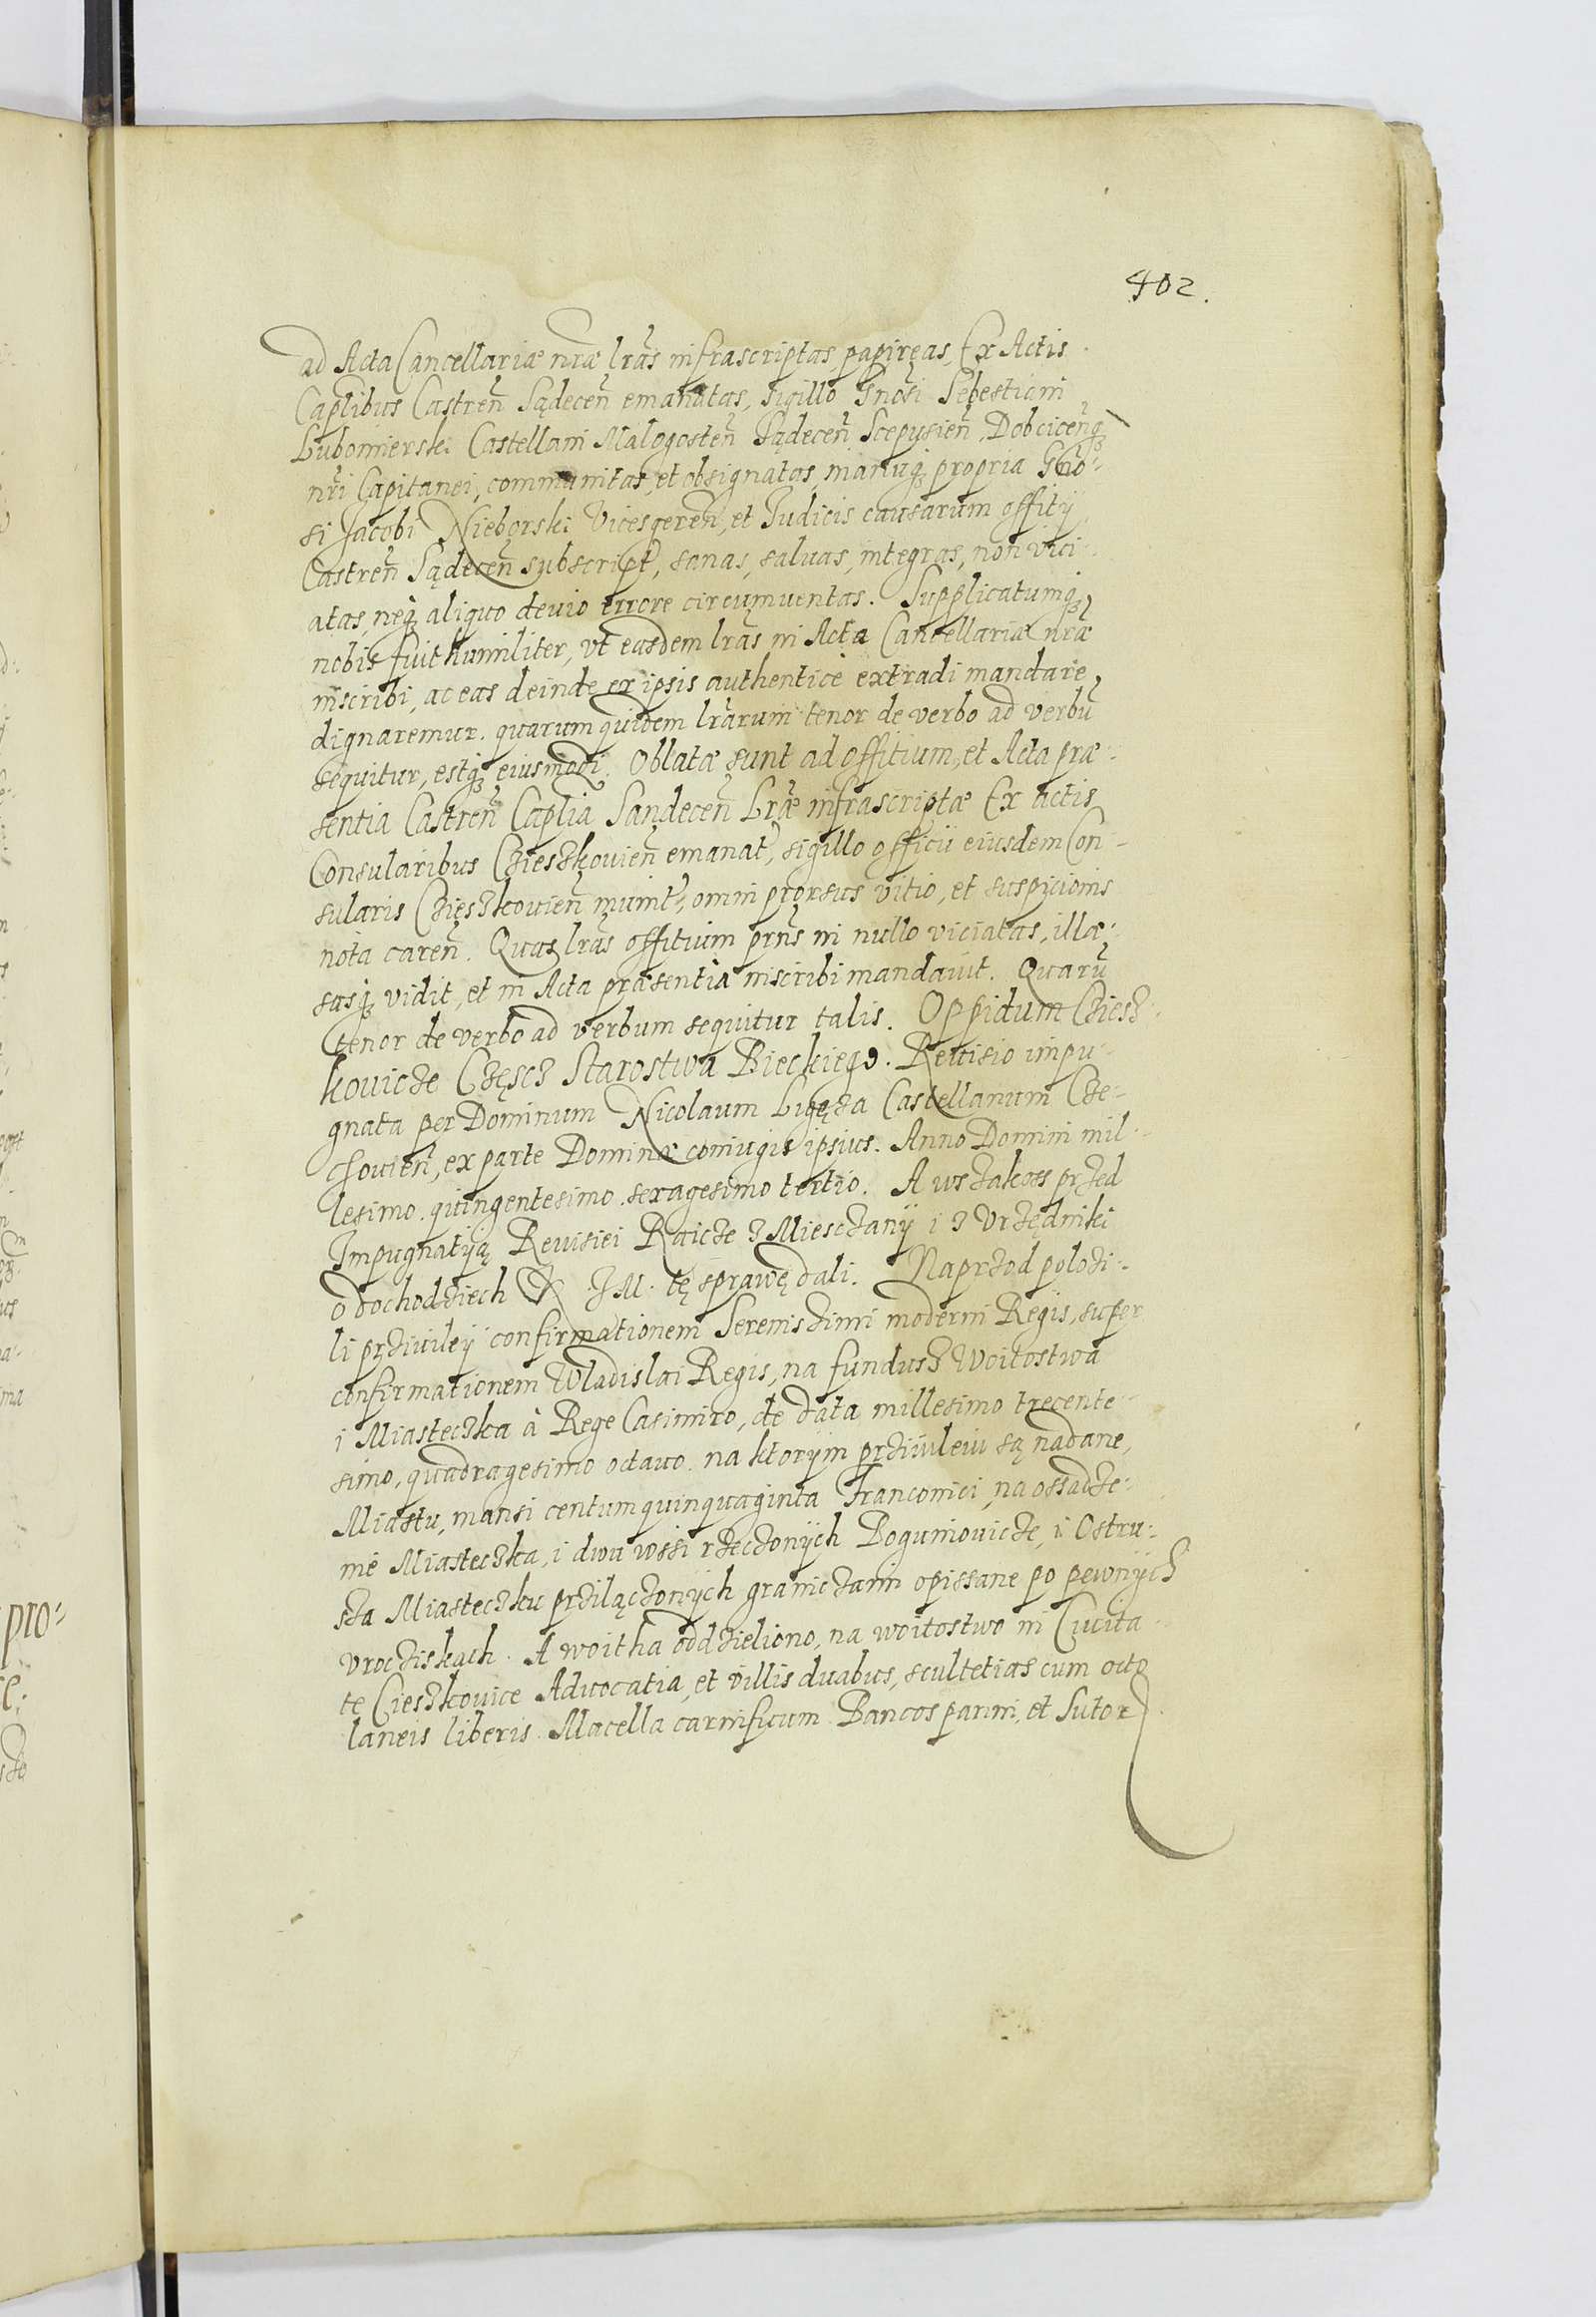 402.
ad Acta Cancellariæ nr̃æ lr̃as infrascriptas, papireas, Ex Actis
Capl̃ibus Castren̄ Sądecen̄ emanatas, sigillo Gnōsi Sebestiani
Lubomierski Castellani Malogosten̄ Sądecen̄ Scepusien̄, Dobcicen̄q̨
nr̃i Capitanei, communitas, et obsignatas, manuq̨ propria Gnō-
si Jacobi Nieborski Vicesgeren̄, et Judicis causarum offitij
Castren̄ Sądecen̄ subscript̃, sanas, saluas, integras, non vici-
atas, neq̨ aliquo deuio errore circumuentas. Supplicatumq̨
nobis fuit humiliter, vt easdem lr̃as in Acta Cancellariæ nr̃æ
inscribi, ac eas deinde ex ipsis authentice extradi mandare
dignaremur. quarum quidem lr̃arum tenor de verbo ad verbū
sequitur, estq̨ eiusmodi. Oblatæ sunt ad offitium, et Acta præ-
sentia Castren̄ Capl̃ia Sandecen̄ Lr̃æ infrascriptæ Ex actis
Consularibus Czieszkouien̄ emanat̃, sigillo officii eiusdem Con-
sularis Czięszkouien̄ munit̃, omni prorsus vitio, et suspicionis
nota caren̄. Quas lr̃as offitium prn̄s in nullo viciatas, illæ-
sasq̨ vidit, et in Acta præsentia inscribi mandauit. Quarū
tenor de verbo ad verbum sequitur talis. Oppidum Cziesz-
kouicze Częscz Starostwa Bieckiego. Reuisio impu-
gnata per Dominum Nicolaum Ligęza Castellanum Cze-
chouien̄, ex parte Dominæ coniugis ipsius. Anno Domini mil-
lesimo quingentesimo sexagesimo tertio. A wszakoss przed
Impugnatiją Reuisiei Raicze z Miesczanÿ i z Vrzędniki
o dochodziech K J M. tę sprawę dali. Naprzod polozi-
li prziuileÿ confirmationem Serenissimi moderni Regis, super
confirmationem Wladislai Regis, na fundusz Woitostwa
i Miasteczka à Rege Casimiro, de data millesimo trecente-
simo, quadragesimo octauo. na ktorÿm prziuileiu są nadane,
Miastu, mansi centum quinquaginta Franconici, na ossadze-
nie Miasteczka, i dwu wssi rzeczonÿch Boguniouicze, i Ostru-
sza Miasteczku prziłączonÿch graniczami opissane po pewnÿch
vrocziskach. A woitha oddzieliono, na woitostwo in Ciuita-
te Cieszkouice Aduocatia, et villis duabus, scultetias cum octo
laneis liberis. Macella carnificum Bancos panni, et Sutor